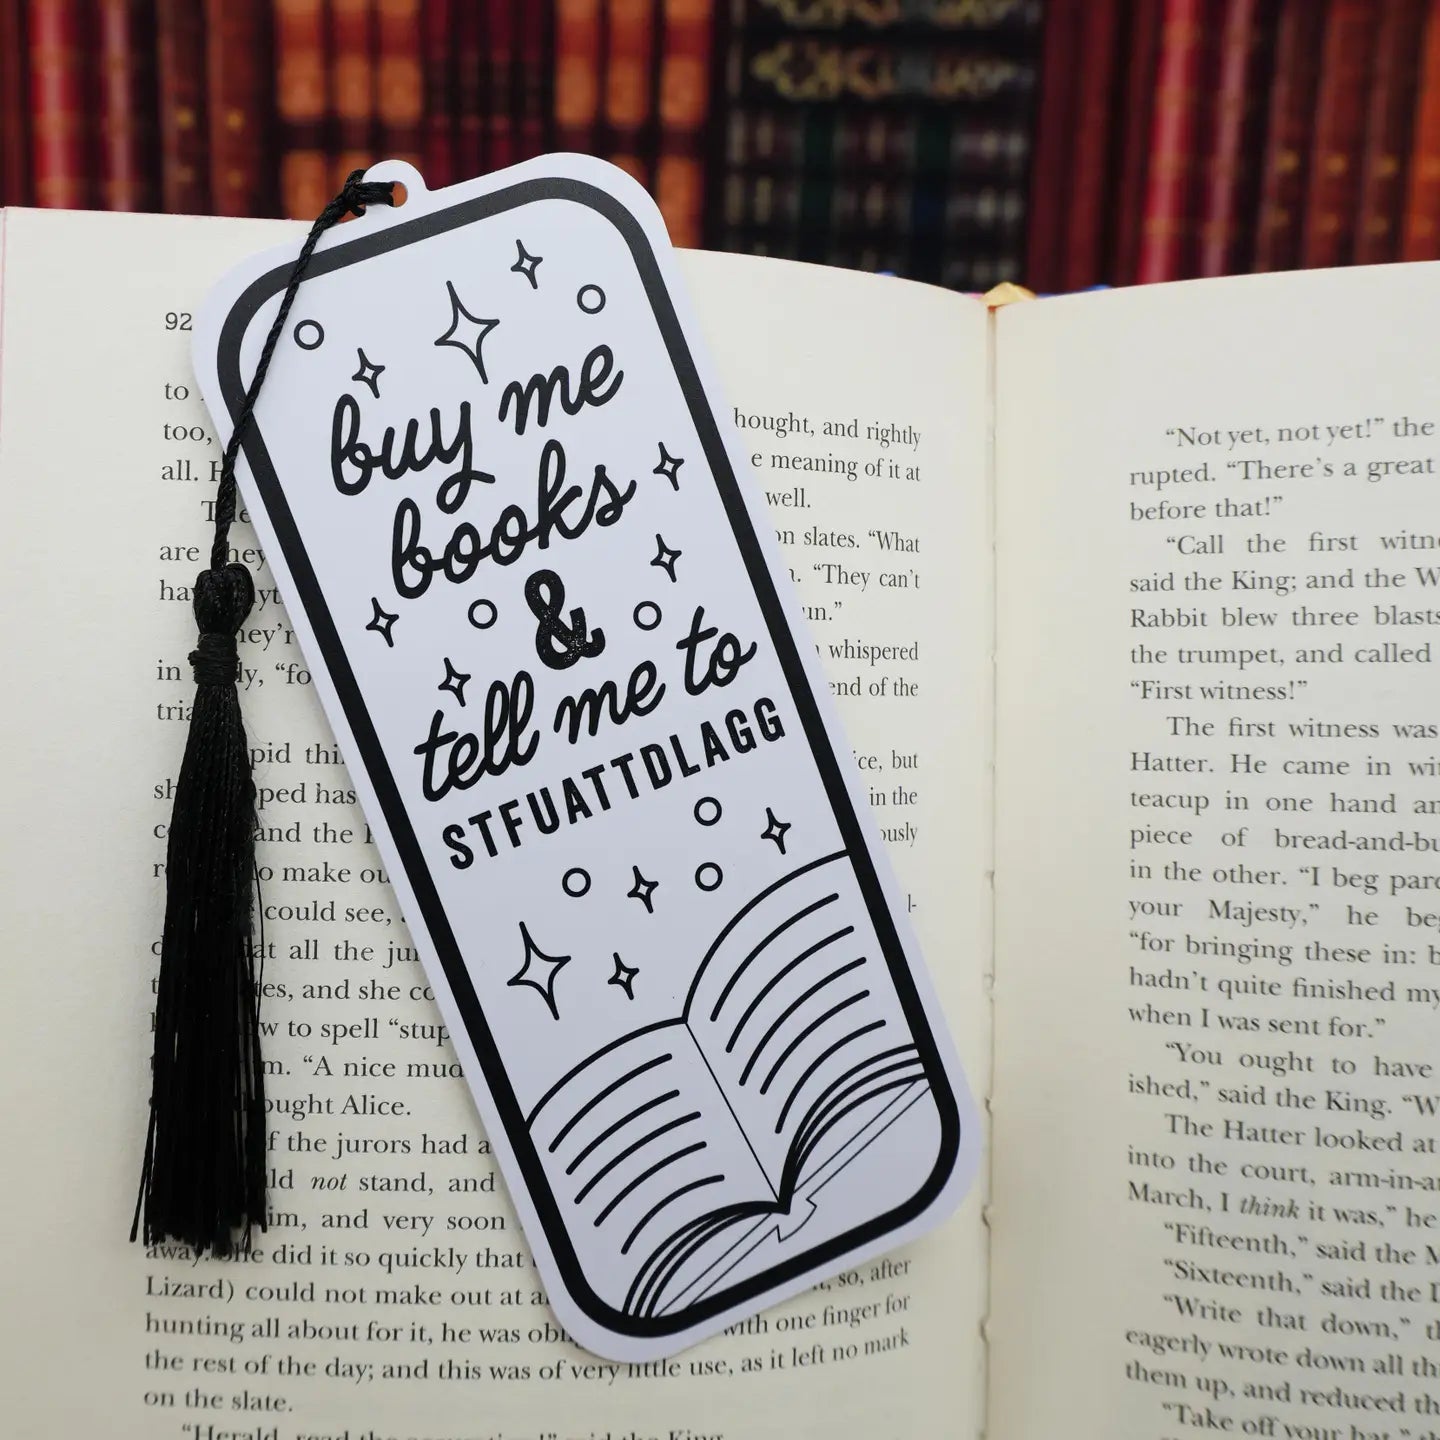 buy me
books
&
tell me to
STFUATTDLAGG
92
to
too,
all. H
are they
in
hought, and rightly
e meaning of it at
well.
on slates. “What
“They can’t
un.”
whispered
end of the
ice, but
in the
ously
pid thi
ped has
and the
o make ou
could see,
at all the jur
tes, and she co
w to spell “stup
m. “A nice mud
ought Alice.
f the jurors had a
ld not stand, and
im, and very soon
away. She did it so quickly that
Lizard) could not make out at a
so, after
hunting all about for it, he was obl
with one finger for
the rest of the day; and this was of very little use, as it left no mark
on the slate.
“Herald, read the accusation!” said the King.
“Not yet, not yet!” the
rupted. “There’s a great
before that!”
“Call the first witn
said the King; and the W
Rabbit blew three blasts
the trumpet, and called
“First witness!”
The first witness was
Hatter. He came in wi
teacup in one hand an
piece of bread-and-bu
in the other. “I beg pard
your Majesty,” he beg
“for bringing these in: b
hadn’t quite finished my
when I was sent for.”
“You ought to have
ished,” said the King. “W
The Hatter looked at
into the court, arm-in-a
March, I think it was,” he
“Fifteenth,” said the M
“Sixteenth,” said the D
“Write that down,” th
eagerly wrote down all th
them up, and reduced th
“Take off your hat,” th